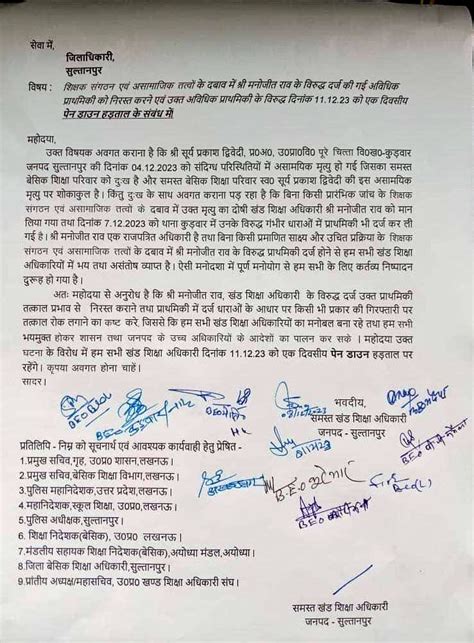 सेवा में,
जिलाधिकारी,
सुल्तानपुर
विषय : शिक्षक संगठन एवं असामाजिक तत्वों के दबाव में श्री मनोजीत राव के विरुद्ध दर्ज की गई अविधिक
प्राथमिकी को निरस्त करने एवं उक्त अविधिक प्राथमिकी के विरुद्ध दिनांक 11.12.23 को एक दिवसीय
पेन डाउन हड़ताल के संबंध में।
महोदया,
उक्त विषयक अवगत कराना है कि श्री सूर्य प्रकाश द्विवेदी, प्र0अ0, उ0प्रा0वि0 पूरे चित्ता वि0ख0-कुड़वार
जनपद सुल्तानपुर की दिनांक 04.12.2023 को संदिग्ध परिस्थितियों में असामयिक मृत्यु हो गई जिसका समस्त
बेसिक शिक्षा परिवार को दुःख है और समस्त बेसिक शिक्षा परिवार स्व0 सूर्य प्रकाश द्विवेदी की इस असामयिक
मृत्यु पर शोकाकुल है। किंतु दुःख के साथ अवगत कराना पड़ रहा है कि बिना किसी प्रारंभिक जांच के शिक्षक
संगठन एवं असामाजिक तत्वों के दबाव में उक्त मृत्यु का दोषी खंड शिक्षा अधिकारी श्री मनोजीत राव को मान
लिया गया तथा दिनांक 7.12.2023 को थाना कुड़वार में उनके विरुद्ध गंभीर धाराओं में प्राथमिकी भी दर्ज कर ली
गई है। श्री मनोजीत राव एक राजपत्रित अधिकारी है तथा बिना किसी प्रमाणित साक्ष्य और उचित प्रक्रिया के शिक्षक
संगठन एवं असामाजिक तत्वों के दबाव में श्री मनोजीत राव के विरुद्ध प्राथमिकी दर्ज होने से हम सभी खंड शिक्षा
अधिकारियों में भय तथा असंतोष व्याप्त है। ऐसी मनोदशा में पूर्ण मनोयोग से हम सभी के लिए कर्तव्य निष्पादन
दुरूह हो गया है।
अतः महोदया से अनुरोध है कि श्री मनोजीत राव, खंड शिक्षा अधिकारी के विरुद्ध दर्ज उक्त प्राथमिकी
तत्काल प्रभाव से निरस्त कराने तथा प्राथमिकी में दर्ज धाराओं के आधार पर किसी भी प्रकार की गिरफ्तारी पर
तत्काल रोक लगाने का कष्ट करे, जिससे कि हम सभी खंड शिक्षा अधिकारियों का मनोबल बना रहे तथा हम सभी
भयमुक्त होकर शासन तथा जनपद के उच्च अधिकारियों के आदेशों का पालन कर सके। महोदया उक्त
घटना के विरोध में हम सभी खंड शिक्षा अधिकारी दिनांक 11.12.23 को एक दिवसीय पेन डाउन हड़ताल पर
रहेंगे। कृपया अवगत होना चाहें।
सादर।
भवदीय,
समस्त खंड शिक्षा अधिकारी
जनपद - सुल्तानपुर
प्रतिलिपि - निम्न को सूचनार्थ एवं आवश्यक कार्यवाही हेतु प्रेषित -
1.प्रमुख सचिव,गृह, उ0प्र0 शासन,लखनऊ।
2.प्रमुख सचिव,बेसिक शिक्षा विभाग,लखनऊ।
3.पुलिस महानिदेशक,उत्तर प्रदेश,लखनऊ।
4.महानिदेशक,स्कूल शिक्षा, उ0प्र0,लखनऊ।
5.पुलिस अधीक्षक,सुल्तानपुर।
6. शिक्षा निदेशक(बेसिक), उ0प्र0 लखनऊ।
7.मंडलीय सहायक शिक्षा निदेशक(बेसिक),अयोध्या मंडल,अयोध्या।
8.जिला बेसिक शिक्षा अधिकारी,सुल्तानपुर।
9.प्रांतीय अध्यक्ष/महासचिव, उ0प्र0 खण्ड शिक्षा अधिकारी संघ।
समस्त खंड शिक्षा अधिकारी
जनपद - सुल्तानपुर